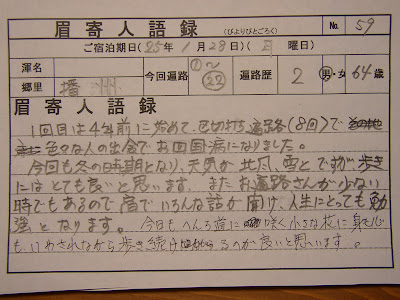 眉寄人語録 (びよりびとごろく) No. 59
ご宿泊期日( 25年 1月 28日( 月 曜日)
渾名 今回遍路 ①〜㉒ 遍路歴 2 男・女 64歳
郷里 播州
眉寄人語録
1回目は4年前に始めて、区切打ち遍路(8回)で
色々な人の出会でお四国病になりました。
今回も冬の時期となり、天気が北風、雪とですが、歩き
にはとても良いと思います。またお遍路さんが少ない
時でもあるので宿でいろんな話が聞け、人生にとっても勉
強となります。今日もへんろ道に咲く小さな花に身も心
もいやされながら歩き続けるのが良いと思います。